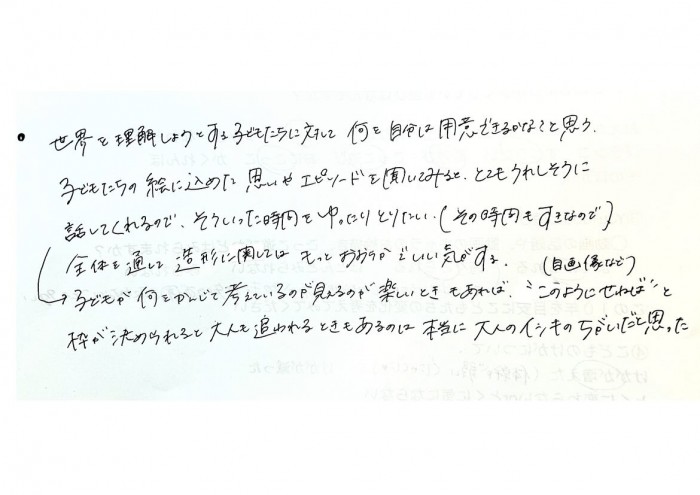 世界を理解しようとする子どもたちに対して 何を自分は用意できるかな?と思う.
子どもたちの絵に込めた思いやエピソードを聞いてみると、とてもうれしそうに
話してくれるので、そういった時間をゆったりとりたい.(その時間もすきなので)
全体を通して 造形に関しては もっとおおらかでいい気がする. (自画像など)
→子どもが何をかんじて考えているのが見えるのが楽しいときもあれば、"このようにせねば"と
枠が決められると大人も追われるときもあるのは 本当に 大人のイシキのちがいだと思った